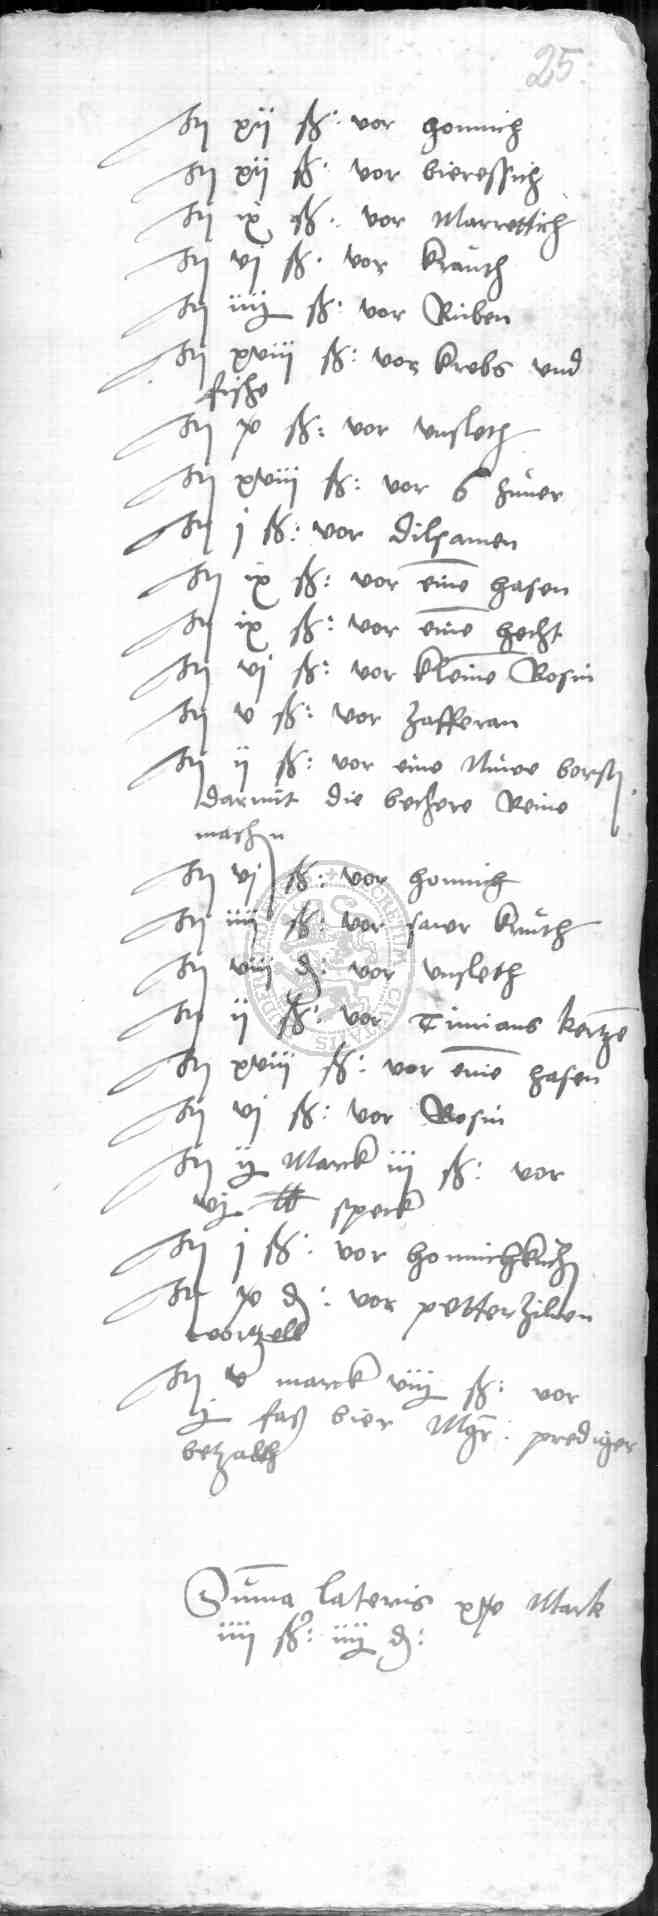 25
It xij ß: vor honnich
It xij ß: vor bieressich
It ix ß: vor Marrettich
It vj ß: vor krauth
It iiij ß: vor Ruben
It xviij ß: vor krebs vnd
fische
It x ß: vor vnsleth
It xviij ß: vor 6 huner
It j ß: vor dilsamen
It ix ß: vor eine hasen
It ix ß: vor eine hecht
It vj ß: vor kleine Rosin
It v ß: vor zafferan
It ij ß: vor eine Nuwe borst
darmit die bechere Reine
machen
It vj ß: vor honnich
It iiij ß: vor sawer krauth
It viij d: vor vnsleth
It ij ß: vor kertze
It xviij ß: vor eine hasen
It vj ß: vor Rosin
It ij Marck iij ß: vor
vj speck
It j ß: vor honnichkuch
It x d: vor petterzilien
wortzell
It v marck viij ß: vor
faß bier Mgr: prediger
betzalth
Suma lateris Mark
iiij ß: iiij d: